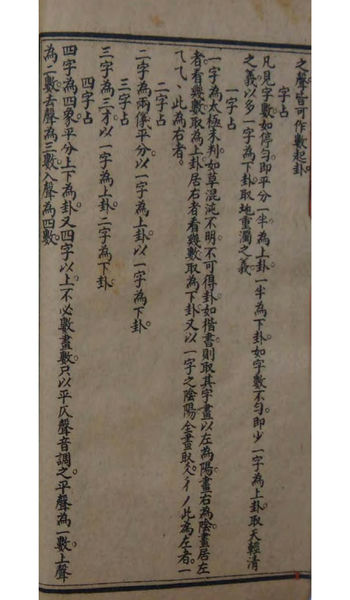 之聲皆可作數起卦。
字占
凡見字數如停勻即平分一半為上卦一半為下卦如字數不勻即少一字為上卦取天輕清
之義以多一字為下卦取地重濁之義
一字占
一字為太極未判如草混沌不明不可得卦如楷書則取其字畫以左為陽畫右為陰畫居左
者看幾數取為上卦居右者看幾數取為下卦又以一字之陰陽全畫取久彳丿此為左者一
乁乀丶此為右者。
二字占
二字為兩儀平分以一字為上卦以一字為下卦。
三字占
三字為三才以一字為上卦二字為下卦
四字占
四字為四象平分上下為卦又四字以上不必數畫數只以平仄聲音調之平聲為一數上聲
為二數去聲為三數入聲為四數